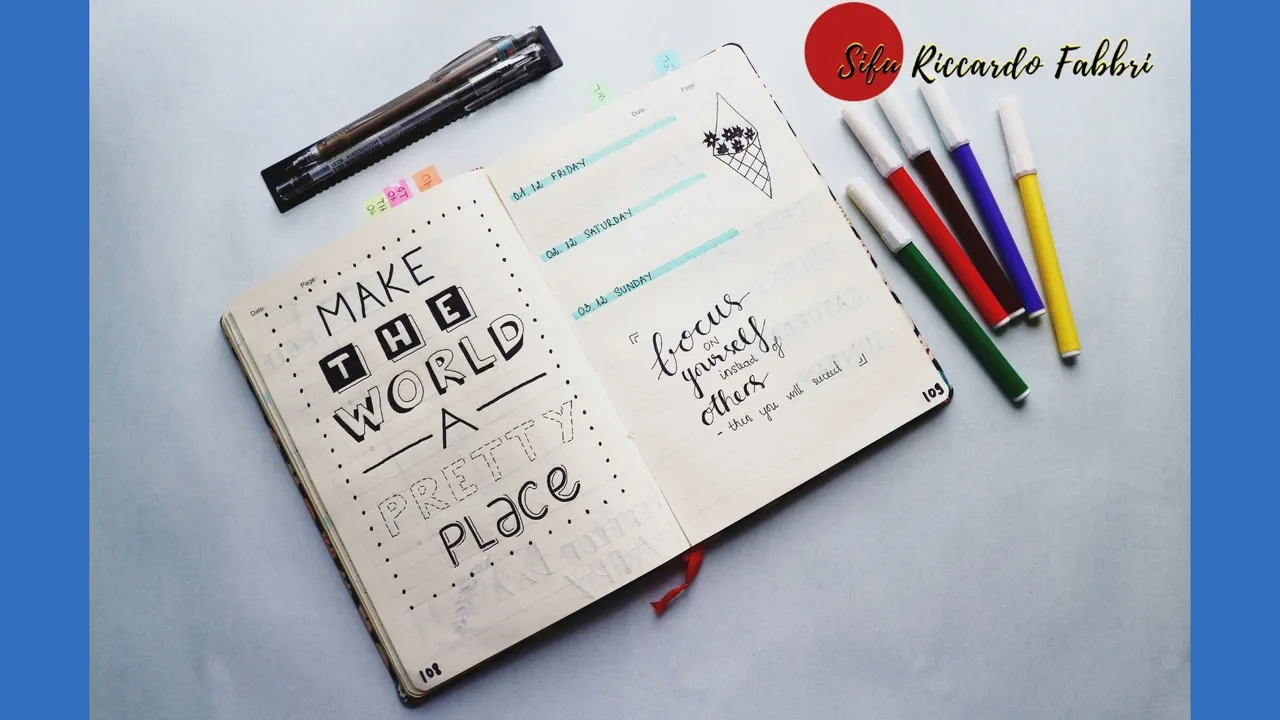 Sifu Riccardo Fabbri
Date:
Page:
MAKE
THE
WORLD
A
PRETTY
PLACE
108
Date:
Page
01.12 FRIDAY
02.12 SATURDAY
03.12 SUNDAY
focus
on
yourself
instead of
others
- then you will succeed
109